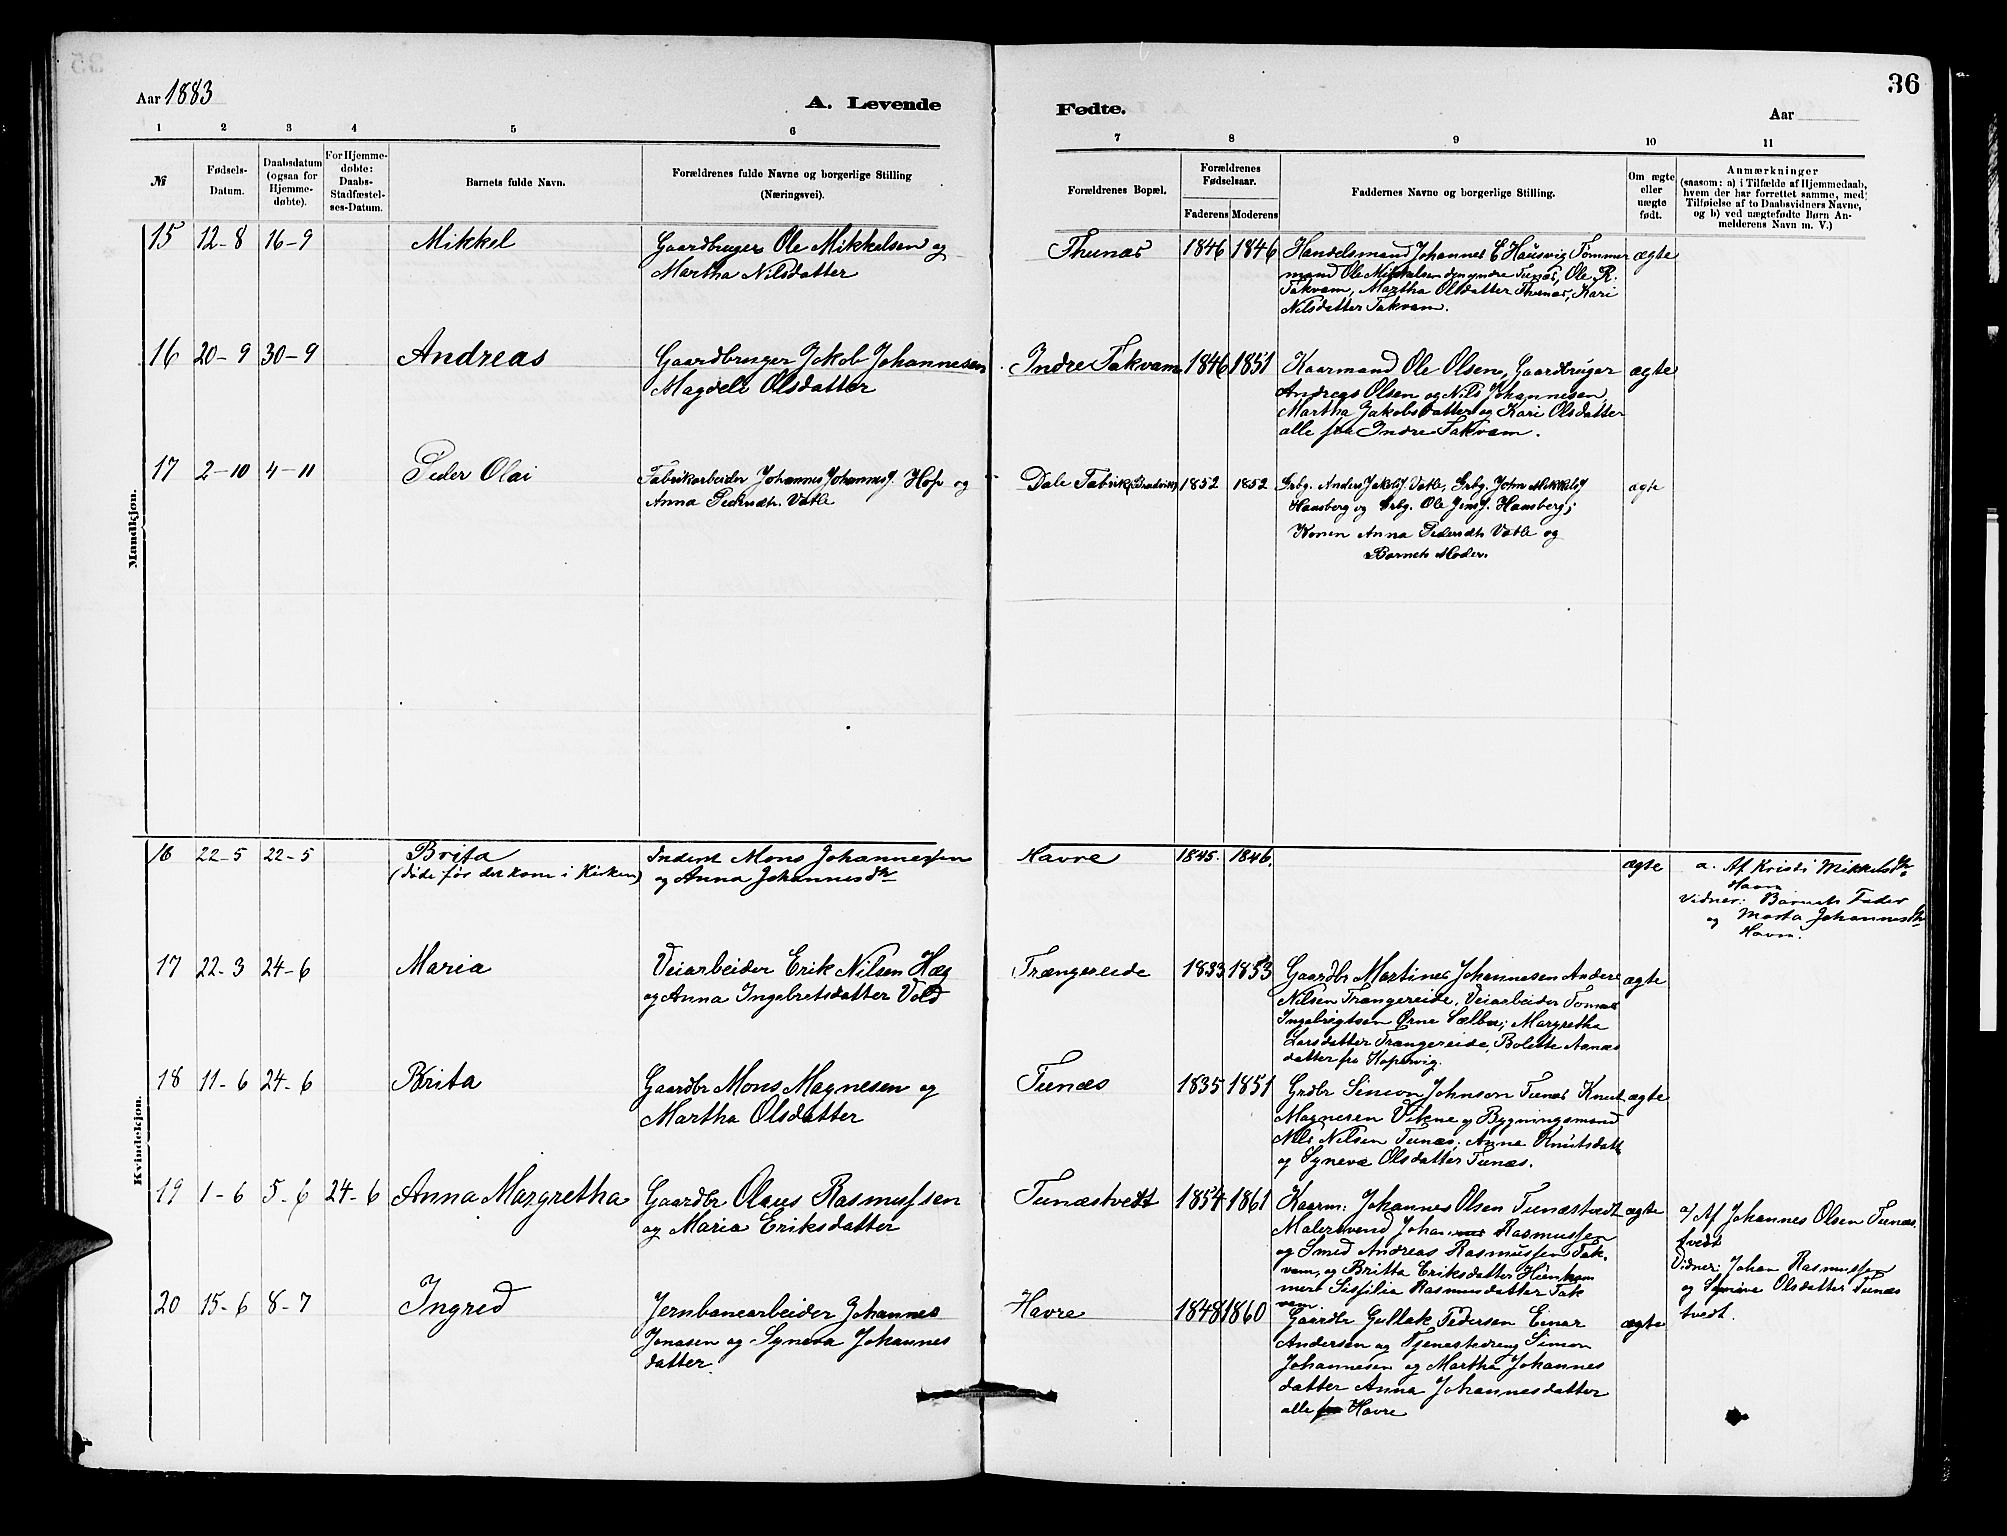 Aar 1883
A. Levende
Fødte.
Aar
36
1 2 3 4 5 6 7 8 9 10 11
№
Fødsels-
Datum.
Daabsdatum
(ogsaa for
Hjemme-
døbte).
For Hjemme-
døbte:
Daabs-
Stadfæstel-
ses-Datum.
Barnets fulde Navn.
Forældrenes fulde Navne og borgerlige Stilling
(Næringsvei).
Forældrenes Bopæl.
Forældrenes
Fødselsaar.
Faderens Moderens
Faddernes Navne og borgerlige Stilling.
Om ægte
eller
uægte
født.
Anmærkninger
(saasom: a) i Tilfælde af Hjemmedaab,
hvem der har forrettet samme, med
Tilføielse af to Daabsvidners Navne,
og b) ved uægtefødte Børn An-
melderens Navn m. V.)
Mandkjøn.
15 12-8 16-9 Mikkel
Gaardbruger Ole Mikkelsen og
Martha Nilsdatter
Thunæs 1846 1846
Handelsmand Johannes E Hausvig Tømmer
mand Ole Mikkelsen den yndre Tunæs, Ole R.
Takvam, Martha Olsdatter Thunæs, Kari
Nilsdatter Takvam.
ægte
16 20-9 30-9 Andreas
Gaardbruger Jakob Johannesen
Magdeli Olsdatter
Indre Takvam 1846 1851
Kaarmand Ole Olsen, Gaardbruger
Andreas Olsen og Nils Johannesen,
Martha Jakobsdatter og Kari Olsdatter
alle fra Indre Takvam.
ægte
17 2-10 4-11 Peder Olai
Fabrikarbeider Johannes JohannesJ. Hop og
Anna Pedersdtr. Vatle
Dale Fabrik 1852 1852
Grbg. Anders JakobsJ Vatle, Grbg. John MikkelsJ
Hamsberg og Grbg. Ole JensJ. Hamsberg;
Konen Anna Pedersdtr Vatle og
Barnets Moder.
ægte
Kvindekjøn.
16 22-5 22-5 Brita
(døde før det kom i Kirken)
Inderst Mons Johannessen
og Anna Johannesdtr
Havre 1845. 1846.
ægte
a. Af Kristi Mikkelsdtr
Havre
Vidner: Barnets Fader
og Marta Johannesdtr
Havre.
17 22-3 24-6 Maria
Veiarbeider Erik Nilsen Hæg
og Anna Ingebretsdatter Vold
Trængereide 1833 1853
Gaardbr Martines Johannesen Anders
Nilsen Trængereide, Veiarbeider Tomas
Ingebrigtsen Ørne Sælbu; Margretha
Larsdatter Trængereide, Bolette Aanæs
datter fra Hopsvig.
ægte
18 11-6 24-6 Brita
Gaardbr Mons Magnesen og
Martha Olsdatter
Tunæs 1835 1851
Grdbr Simon Johnson Tunæs Knut
Magnesen Vikne og Bygningsmand
Nils Nilsen Tunæs; Anna Knutsdatt
og Syneva Olsdatter Tunæs.
ægte
19 1-6 5-6 24-6 Anna Margretha
Gaardbr Olaus Rasmussen
og Maria Eriksdatter
Tunæstvedt 1854 1861
Kaarm: Johannes Olsen Tunæstvedt
Malersvend Johan Rasmussen
og Smed Andreas Rasmussen Tak-
vam, og Britta Eriksdatter
Sisfilia Rasmusdatter Tak
vam.
ægte
a/ Af Johannes Olsen Tunæs.
tvedt
Vidner: Johan Rasmussen
og Syneva Olsdatter Tunæs
tvedt.
20 15-6 8-7 Ingred
Jernbanearbeider Johannes
Jonasen og Syneva Johannes
datter.
Havre 1848 1860
Gaardbr Gullak Pedersen Einar
Andersen og Tjenestedreng Simon
Johannesen og Martha Johannes
datter Anna Johannesdatter
alle fra Havre
ægte